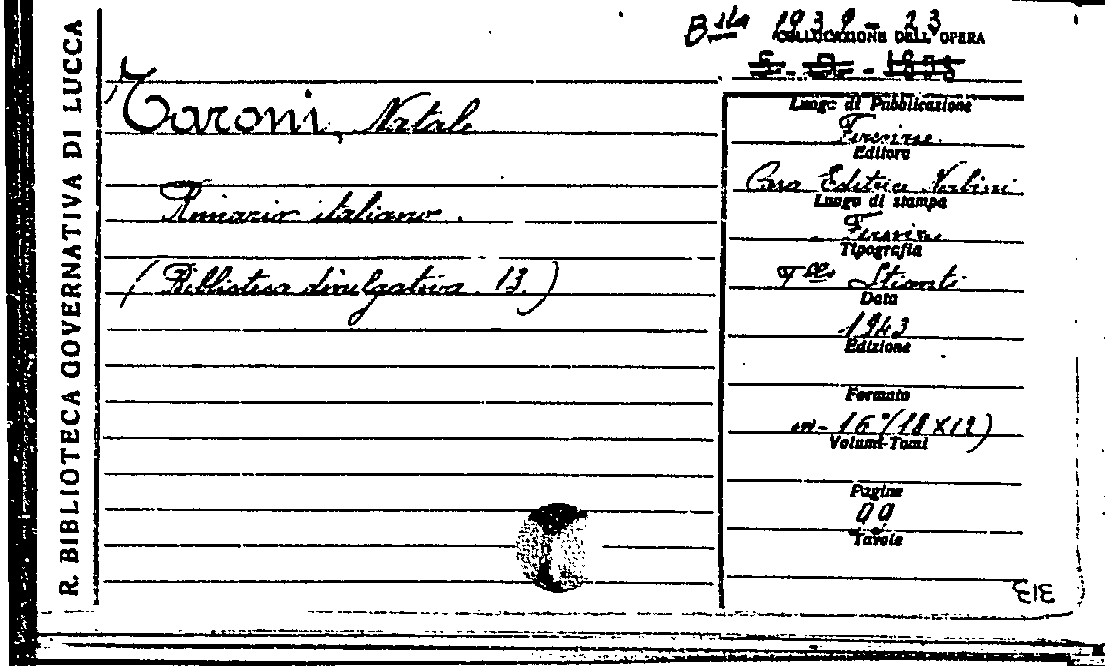 R. BIBLIOTECA GOVERNATIVA DI LUCCA
Bsta 1939 - 23
COLLOCAZIONE DELL'OPERA
Taroni, Natale
Rimario italiano.
(Biblioteca divulgativa. 13.)
Luogo di Pubblicazione
Firenze
Editore
Casa Editrice Nerbini
Luogo di stampa
Firenze
Tipografia
Flli Stianti
Data
1943
Edizione
Formato
in-16°(18×12)
Volumi-Tomi
Pagine
99
Tavole